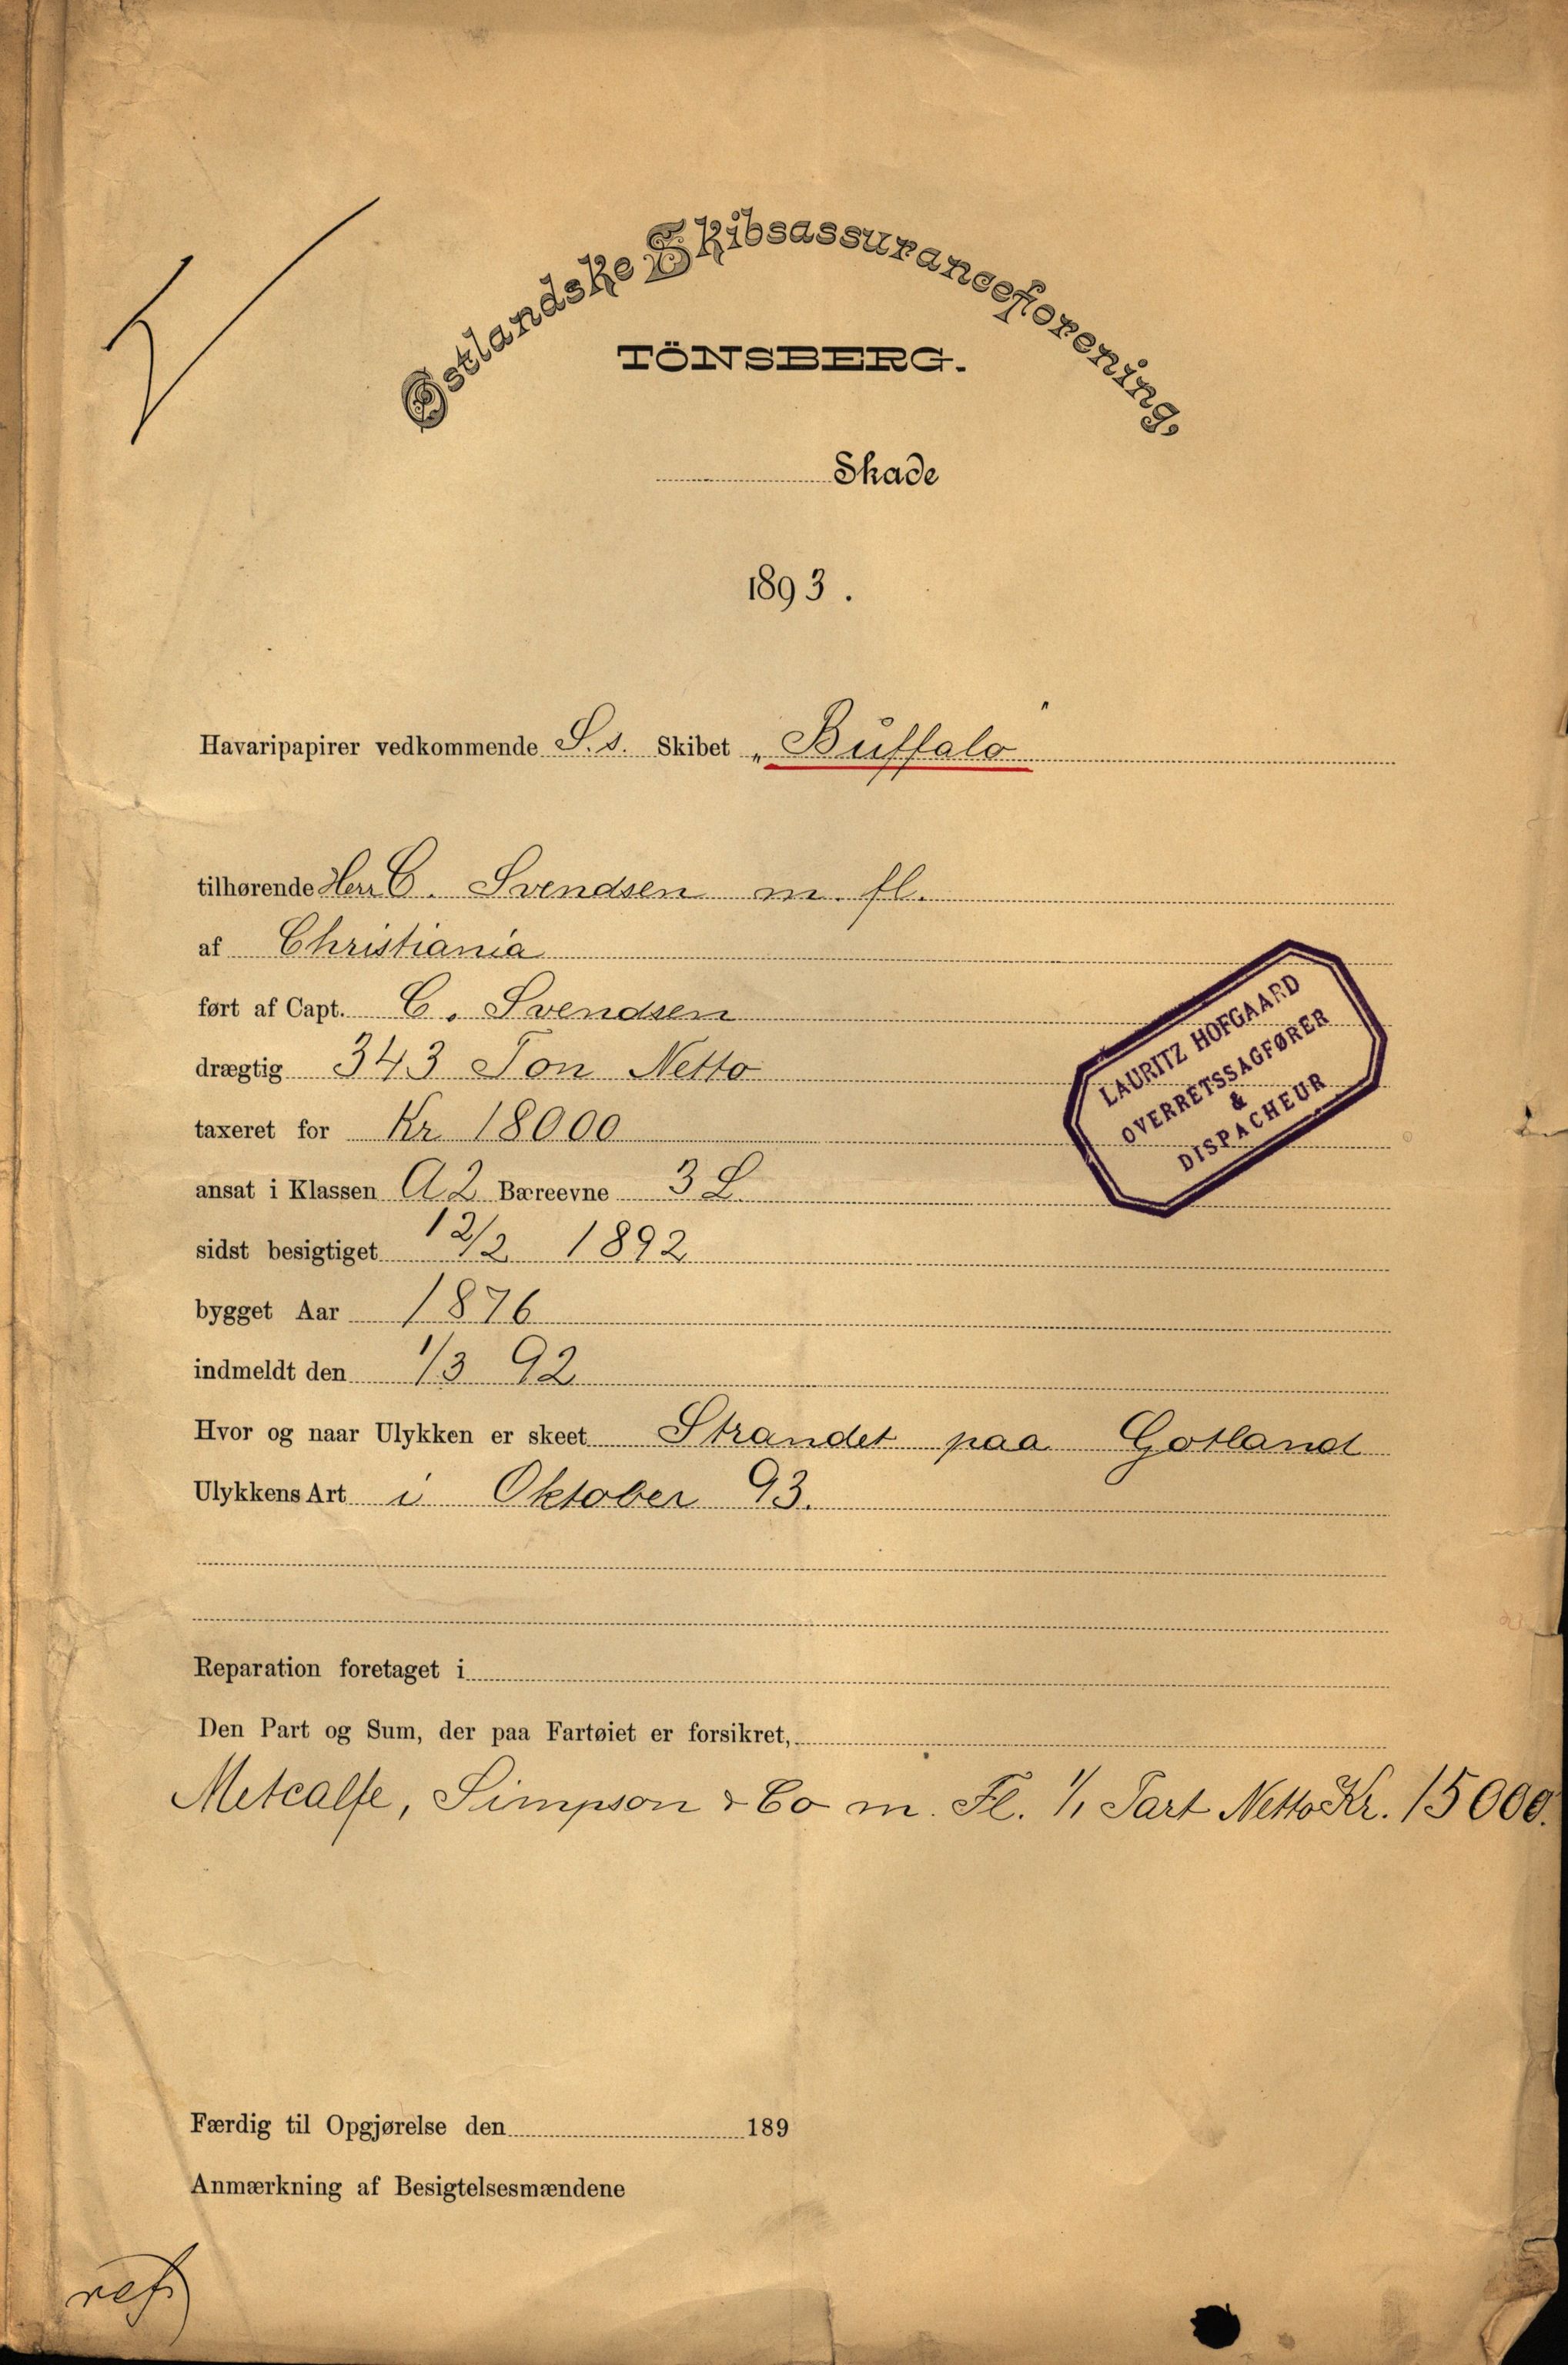 Østlandske Skibsassuranceforening,
TÖNSBERG.
Skade
1893.
Havaripapirer vedkommende S.s. Skibet „Buffalo"
tilhørende Herr C. Svendsen m. fl.
af Christiania
ført af Capt. C. Svendsen
drægtig 343 Ton Netto
taxeret for Kr 18000
ansat i Klassen A2 Bæreevne 3 L.
sidst besigtiget 12/2 1892
bygget Aar 1876
indmeldt den 1/3 92
Hvor og naar Ulykken er skeet Strandet paa Gotland
Ulykkens Art i Oktober 93.
LAURITZ HOFGAARD
OVERRETSSAGFØRER
&
DISPACHEUR
Reparation foretaget i
Den Part og Sum, der paa Fartøiet er forsikret,
Metcalfe, Simpson & Co m. Fl. 1/1 Part Netto Kr. 15000.
Færdig til Opgjørelse den 189
Anmærkning af Besigtelsesmændene